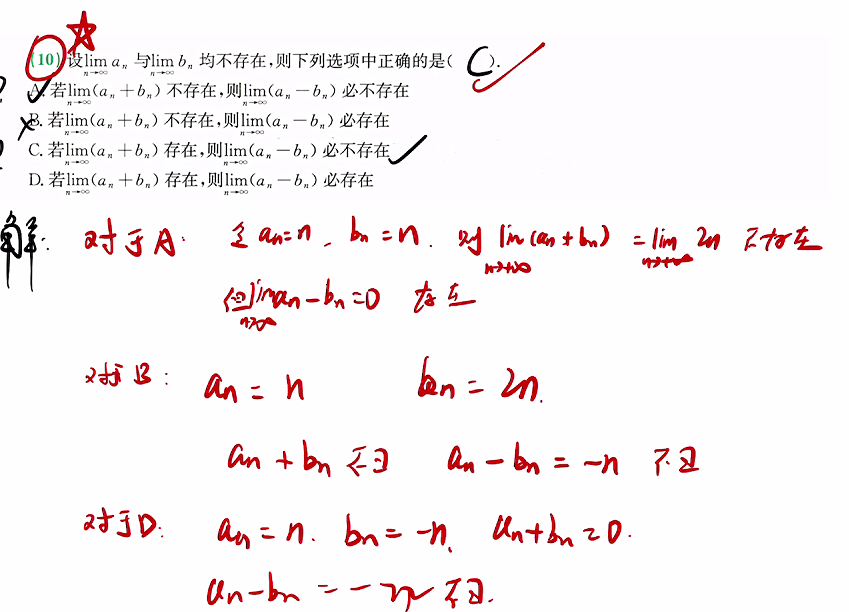 (10) 设lim aₙ 与lim bₙ 均不存在,则下列选项中正确的是( C ).
n→∞ n→∞
A. 若lim(aₙ+bₙ) 不存在,则lim(aₙ-bₙ) 必不存在
n→∞ n→∞
B. 若lim(aₙ+bₙ) 不存在,则lim(aₙ-bₙ) 必存在
n→∞ n→∞
C. 若lim(aₙ+bₙ) 存在,则lim(aₙ-bₙ) 必不存在
n→∞ n→∞
D. 若lim(aₙ+bₙ) 存在,则lim(aₙ-bₙ) 必存在
n→∞ n→∞
解: 对于A: 令 an=n, bn=n. 则 lim(an+bn) = lim 2n 不存在
n→+∞ n→+∞
但lim an-bn=0 存在
n→∞
对于B: an = n bn = 2n.
an + bn 不∃ an - bn = -n 不∃
对于D: an = n. bn = -n. an+bn=0.
an-bn = - 不∃.